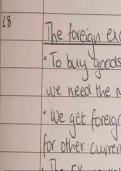 L8
The foreign exc
• To buy goods
we need the m
• We get foreig
for other curren